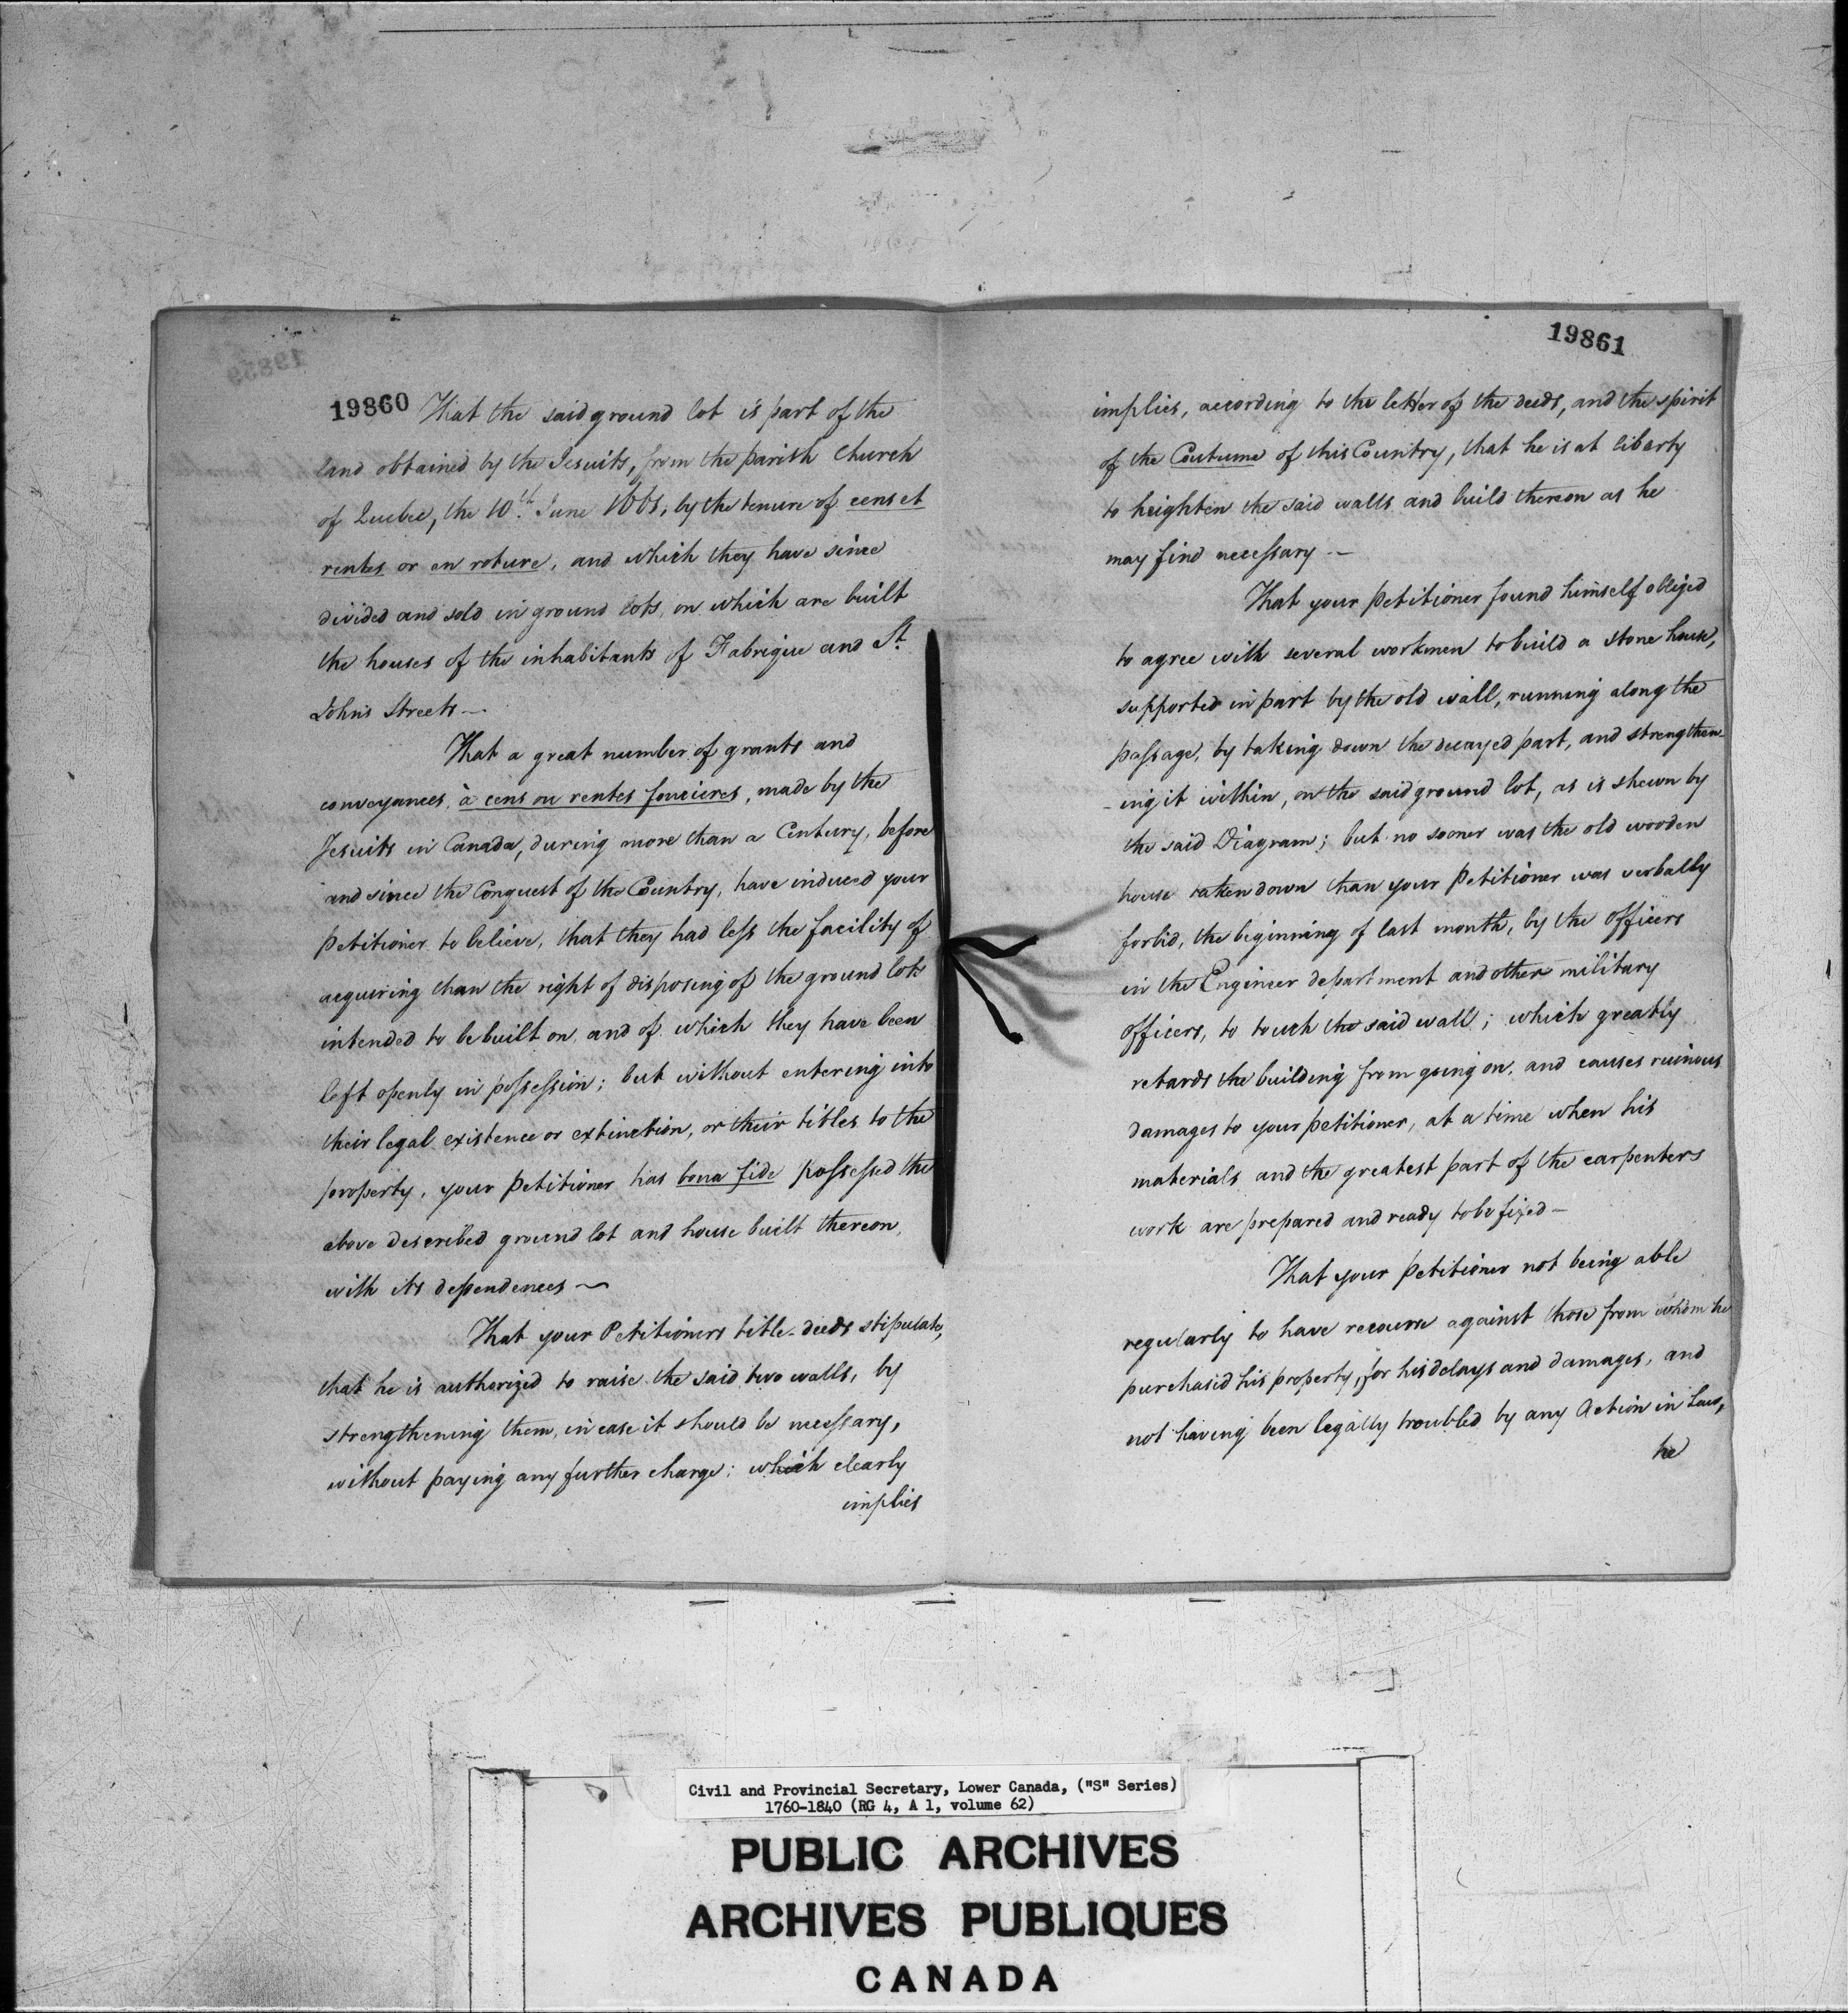 19860
That the said ground lot is part of the
land obtained by the Jesuits, from the parish Church
of Quebec, the 10th June by the tenure of cens et
rentes or en roture, and which they have since
divided and sold in ground lots, on which are built
the houses of the inhabitants of Fabrique and St
John's Streets —
That a great number of grants and
conveyances, à cens ou rentes foncieres, made by the
Jesuits in Canada, during more than a Century, before
and since the Conquest of the Country, have induced your
Petitioner to believe, that they had less the facility of
acquiring than the right of disposing of the ground lots
intended to be built on, and of which they have been
left openly in possession; but without entering into
their legal existence or extinction, or their titles to the
property, your Petitioner has bona fide possessed the
above described ground lot and house built thereon,
with its dependences —
That your Petitioners title-deeds stipulate,
that he is authorized to raise the said two walls, by
strengthening them, in case it should be necessary,
without paying any further charge; which clearly
implies
19861
implies, according to the letter of the deeds, and the spirit
of the Coutume of this Country, that he is at liberty
to heighten the said walls and build thereon as he
may find necessary —
That your Petitioner found himself obliged
to agree with several workmen to build a stone house,
supported in part by the old wall, running along the
passage, by taking down the decayed part, and strengthen-
-ing it within, on the said ground lot, as is shewn by
the said Diagram; but no sooner was the old wooden
house taken down than your Petitioner was verbally
forbid, the beginning of last month, by the officers
in the Engineer department and other military
officers, to touch the said wall; which greatly
retards the building from going on, and causes ruinous
damages to your petitioner, at a time when his
materials and the greatest part of the carpenters
work are prepared and ready to be fixed —
That your Petitioner not being able
regularly to have recourse against those from whom he
purchased his property, for his delays and damages, and
not having been legally troubled by any Action in Law,
he
Civil and Provincial Secretary, Lower Canada, ("S" Series)
1760-1840 (RG 4, A 1, volume 62)
PUBLIC ARCHIVES
ARCHIVES PUBLIQUES
CANADA